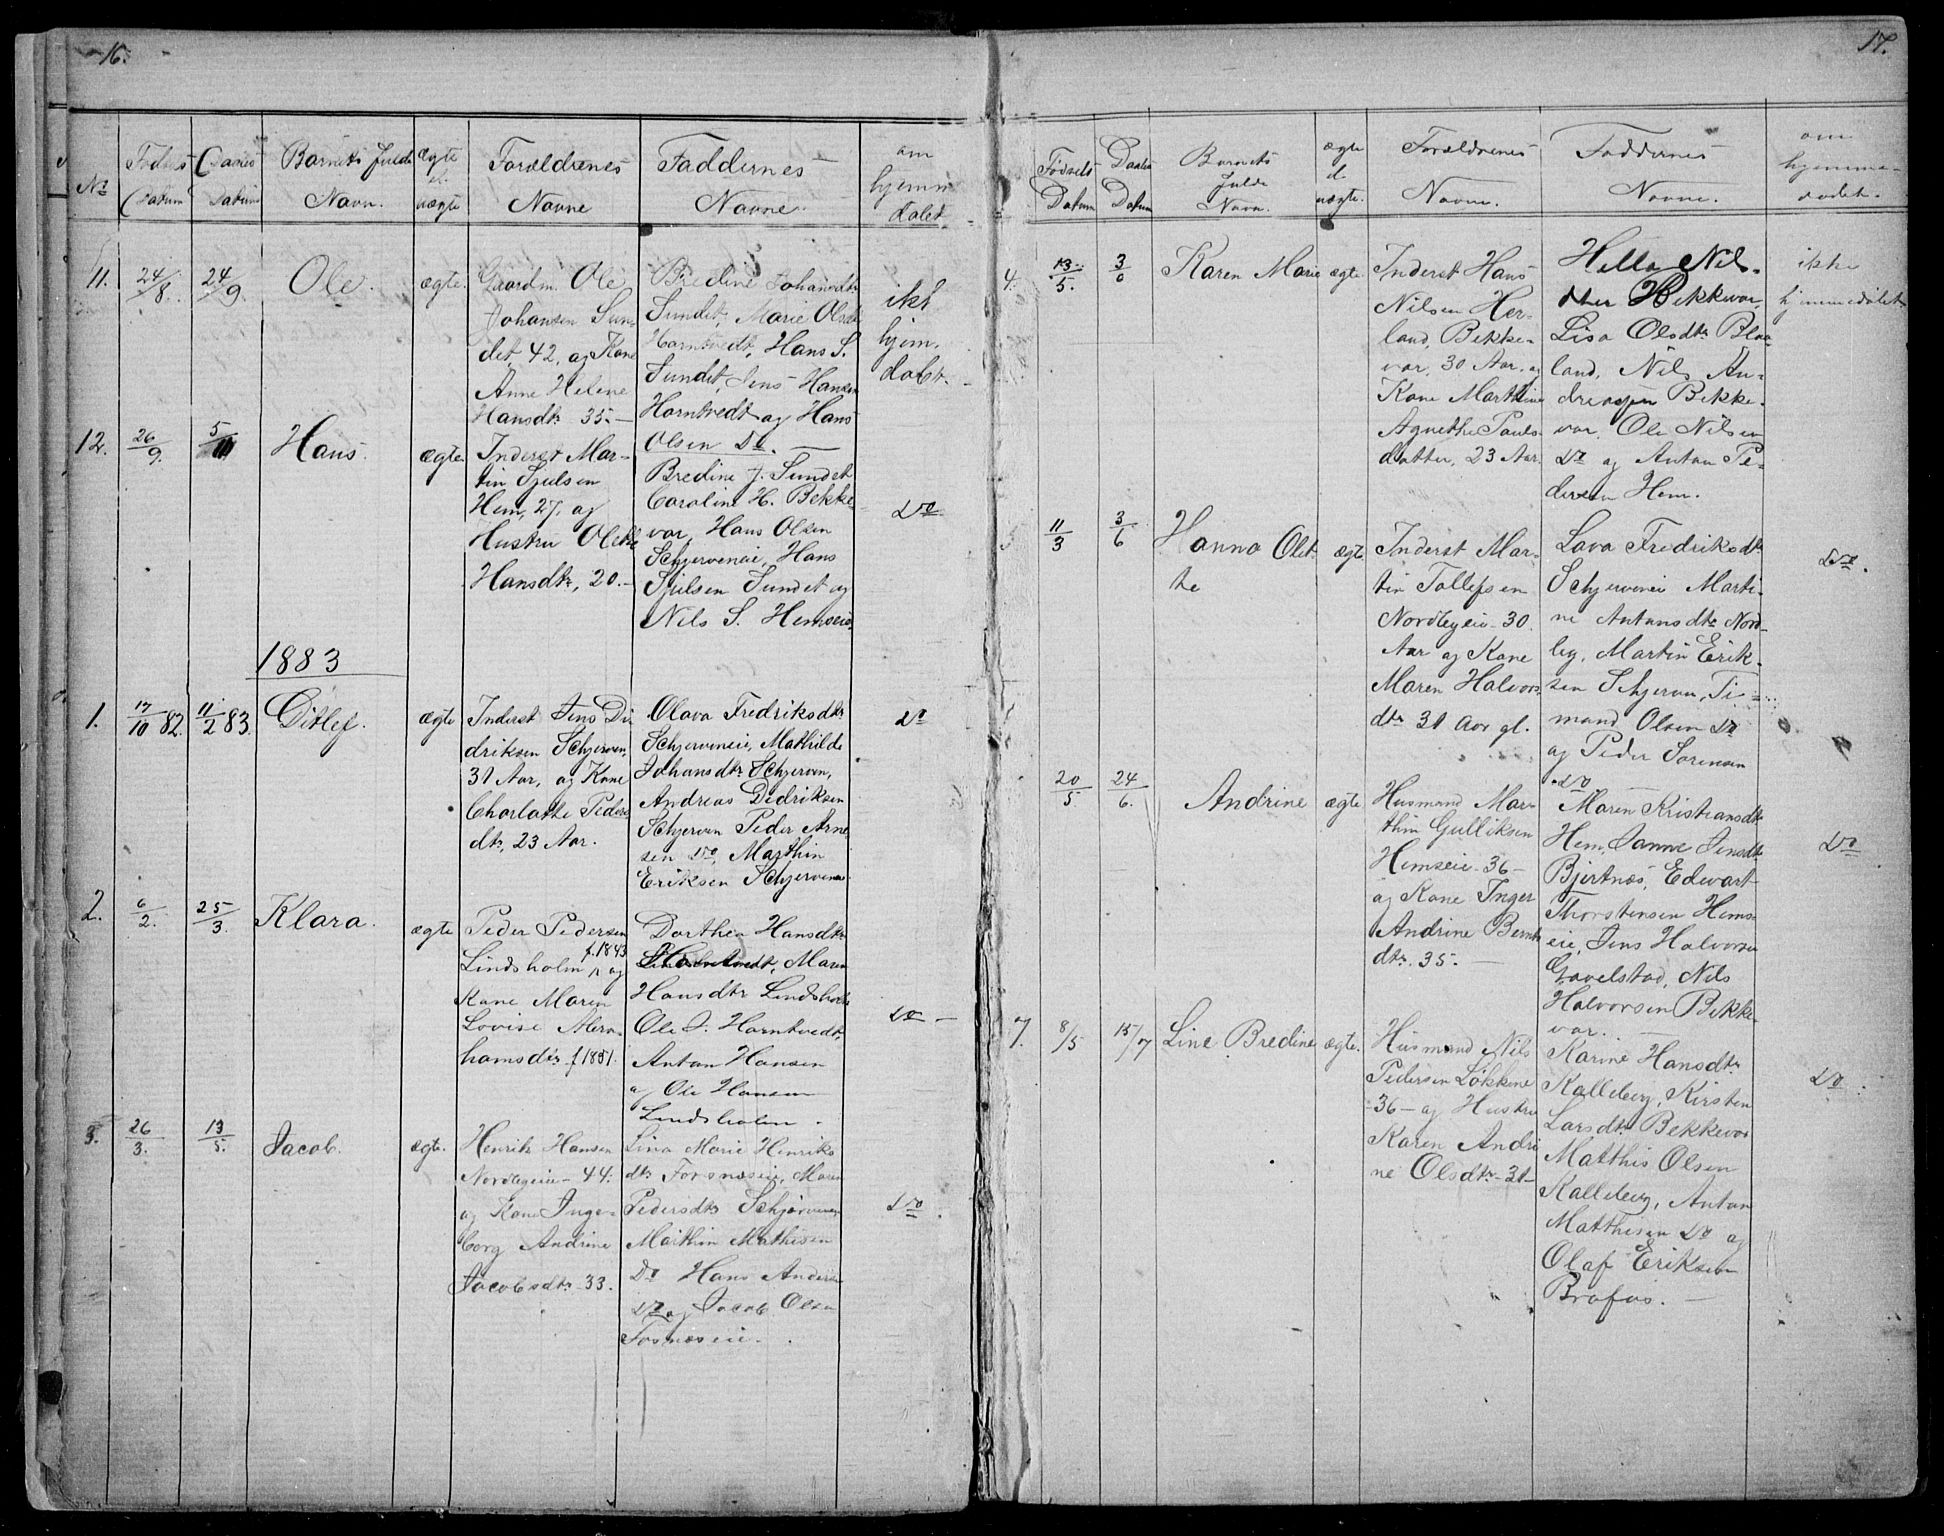 16.
Nr
Fødsels
Datum
Daabs
Datum
Barnets fulde
Navn.
Ægte
el.
uægte
Forældrenes
Navne
Faddernes
Navne.
om
hjemme
døbt
11.
24/8.
24/9.
Ole.
ægte.
Gaardm. Ole
Johansen Sun-
det, 42, og Kone
Anne Helene
Hansdtr 35.-
Bredine Johansdtr
Sundet, Marie Olsdtr
Horntvedt, Hans S.
Sundet, Jens Hansen
Horntvedt og Hans
Olsen Do.
ikke
hjem.
døbt.
12.
26/9.
5/11
Hans.
ægte.
Inderst Mar-
tin Sjulsen
Hem, 27, og
Hustru Olette
Hansdtr, 20.-
Bredine J. Sundet
Caroline H. Bekke-
var, Hans Olsen
Schjerveneie, Hans
Sjulsen Sundet og
Nils S. Hemseie.
Do
1883
1.
17/10 82.
11/2 83.
Ditlef.
ægte
Inderst Jens Di
driksen Schjerven,
31 Aar, og Kone
Charlotte Peders
dtr, 23 Aar.
Olava Fredriksdtr
Schjerveneie, Mathilde
Johansdtr Schjerven,
Andreas Didriksen
Schjerven Peder Arne
sen Do, Marthin
Eriksen Schjerveneie
Do
2.
6/2.
25/3.
Klara.
ægte
Peder Pedersen
f. 1843
Lindsholm og
Kone Maren
Lovise Abra-
hamsdtr f 1851.
Dorthea Hansdtr
Horntvedt, Maren
Hansdtr Lindsholm
Ole J. Horntvedt,
Anton Hansen
og Ole Hansen
Lindsholm.
Do -
3.
26/3.
13/5.
Jacob.
ægte.
Henrik Hansen
Nordlegeie - 44.
og Kone Inge-
borg Andrine
Jacobsdtr 33.
Lina Marie Henriks
dtr Forsnæseie, Maren
Pedersdtr Schjerveneie
Marthin Mathisen
Do Hans Anders
Do og Jacob Olsen
Fosnæseie.
Do.
17.
Fødsels
Datum
Daabs
Datum
Barnets
fulde
Navn.
ægte
el
uægte.
Forældrenes
Navne.
Faddernes
Navne.
om
hjemme-
døbt.
4.
13/5.
3/6
Karen Marie
ægte
Inderst Hans
Nilsen Her-
land, Bekke-
var, 30 Aar, og
Kone Marthine
Agnethe Pauls-
datter, 23 Aar.
Hella Nils-
dtter Bekkevar,
Lisa Olsdtr Blaa-
land, Nils An-
dreasen Bekke-
var, Ole Nilsen
Do og Anton Pe-
dersen Hem.
ikke
hjemmedøbt
11/3
3/6
Hanna Olet-
te
ægte
Inderst Mar-
tin Tollefsen
Nordlegeie - 30
Aar og Kone
Maren Halvors
dtr 31 Aar gl.
Lava Fredriksdtr
Schjerveneie Marti-
ne Antonsdtr Nord-
leg, Martin Erik-
sen Schjerven, Ti-
mand Olsen Do
og Peder Sørensen
Do
Do.
20/5
24/6.
Andrine
ægte
Husmand Mar-
thin Gulliksen
Hemseie - 36 -
og Kone Inger
Andrine Bernts
dtr. 35. -
Maren Kristiansdtr
Hem, Janne Jensdtr
Bjertnæs, Edvart
Thorstensen Hems-
eie, Jens Halvorsen
Gavelstad, Nils
Halvorsen Bekke-
var.
Do
7.
8/5
15/7
Line Bredine
ægte.
Husmand Nils
Pedersen Løkkene
36 - og Hustru
Karen Andri
ne Olsdtr - 31 -
Karine Hansdtr
Kalleberg, Kirsten
Larsdtr Bekkevar
Matthis Olsen
Kalleberg, Anton
Matthisen Do og
Olaf Eriksen
Brafos. -
Do.